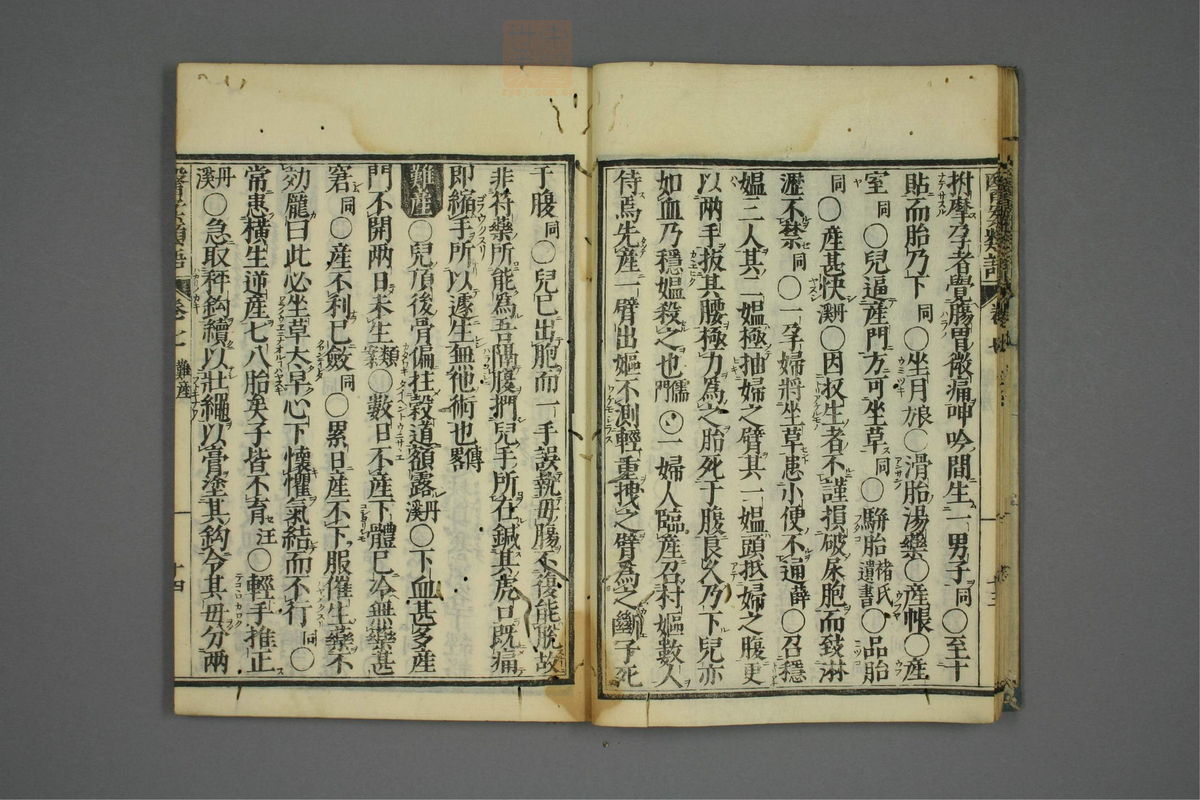 拊摩孕者覺腸胃微痛呻吟間生一男子同〇至十
貼而胎乃下同〇坐月娘〇滑胎湯藥〇産帳〇産
室同〇兒逼産門方可坐草同〇騈胎褚氏遺書〇品胎
同〇産甚快丹溪〇因収生者不謹損破尿胞而致淋
瀝不禁同〇一孕婦將坐草患小便不通薛〇召穩
媼三人其二媼極抽婦之臂其一媼頭抵婦之腹更
以兩手扳其腰極力為之胎死于腹良久乃下兒亦
如血乃穩媼殺之也儒門〇一婦人臨産召村嫗數人
侍焉先産一臂出嫗不測輕重拽之臂為之斷子死
于腹同〇兒已出胞而一手誤執毋腸不復能脱故
非符藥所能為吾隔腹捫兒手所在鍼其虎口既痛
即縮手所以遽生無他術也傳畧
難産〇兒頂後骨偏拄穀道額露丹溪〇下血甚多産
門不開兩日未生類案〇數日不産下體已冷無藥甚
窘同〇産不利已斂同〇累日産不下服催生藥不
効龐曰此必坐草太早心下懷懼氣結而不行同〇
常患橫生逆産七八胎矣子皆不育汪〇輕手推正
丹溪〇急取秤鈎續以壯繩以膏塗其鈎令其毋分兩
卷七
難産
十四